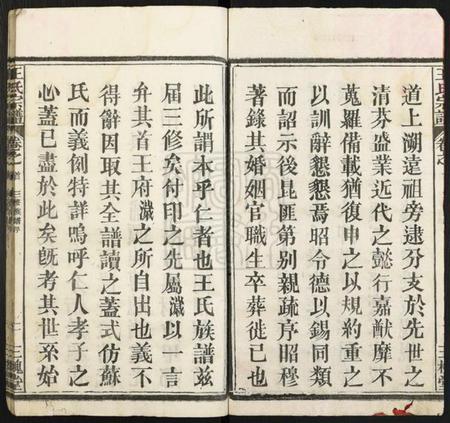 王氏宗譜
卷之
三槐堂
道上溯遠祖旁逮分支於先世之
清芬盛業近代之懿行嘉猷靡不
蒐羅備載猶復申之以規約重之
以訓辭懇懇焉昭令德以錫同類
而詔示後昆匪第別親疏序昭穆
著錄其婚姻官職生卒葬徙已也
此所謂本乎仁者也王氏族譜茲
屆三修矣付印之先屬濊以一言
弁其首王府濊之所自出也義不
得辭因取其全譜讀之蓋式仿蘇
氏而義例特詳嗚呼仁人孝子之
心蓋已盡於此矣旣考其世系始
王氏宗譜
卷之首
三修族譜序
三槐堂